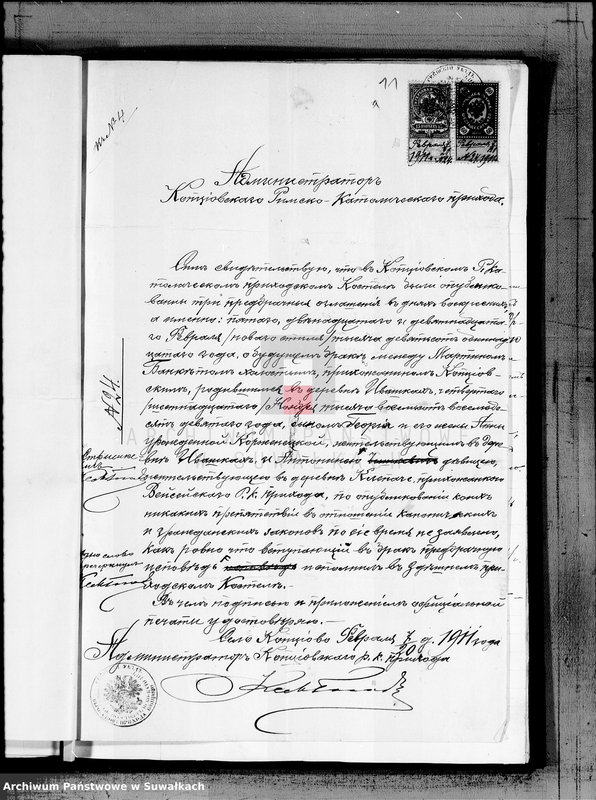 11
къ № 4
Февраля
1911
Администраторъ
Копціовскаго Римско-Католическаго прихода.
Симъ свидѣтельствую, что въ Копціовскомъ Р. Ка-
толическомъ приходскомъ Костелѣ были опублико-
ваны три предбрачныя оглашенія въ дняхъ воскресныхъ
а именно: пятаго, двѣнадцатаго и девятнадцата-
го Февраля /новаго стиля/ тысяча девятьсотъ одиннад-
цатаго года, о будущемъ бракѣ между Мартиномъ
холостымъ, прихожаниномъ Копціов-
скимъ, родившимся въ деревнѣ Ивашкахъ, четвертаго
/шестнадцатаго/ Ноября тысяча восемьсотъ восемьде-
сятъ девятаго года, сыномъ Георгія и его жены Анны
урожденной жительствующимъ въ дере-
внѣ Ивашкахъ, и Антониною дѣвицею,
жительствующею въ деревнѣ прихожанкою
Вейсейскаго Р. К. прихода, по опубликованіи коихъ
никакихъ препятствій въ отношеніи каноническихъ
и гражданскихъ законовъ по сіе время не заявлено,
какъ ровно что вступающій въ бракъ предбрачную
исповѣдь исполнилъ въ здѣшнемъ при-
ходскомъ Костелѣ.
Въ чемъ подписью и приложеніемъ оффиціальной
печати удостовѣряю.
Село Копціово Февраля 7/20 д. 1911 года
Администраторъ Копціовскаго р. к. прихода
№ 24.
Archiwum Państwowe w Suwałkach